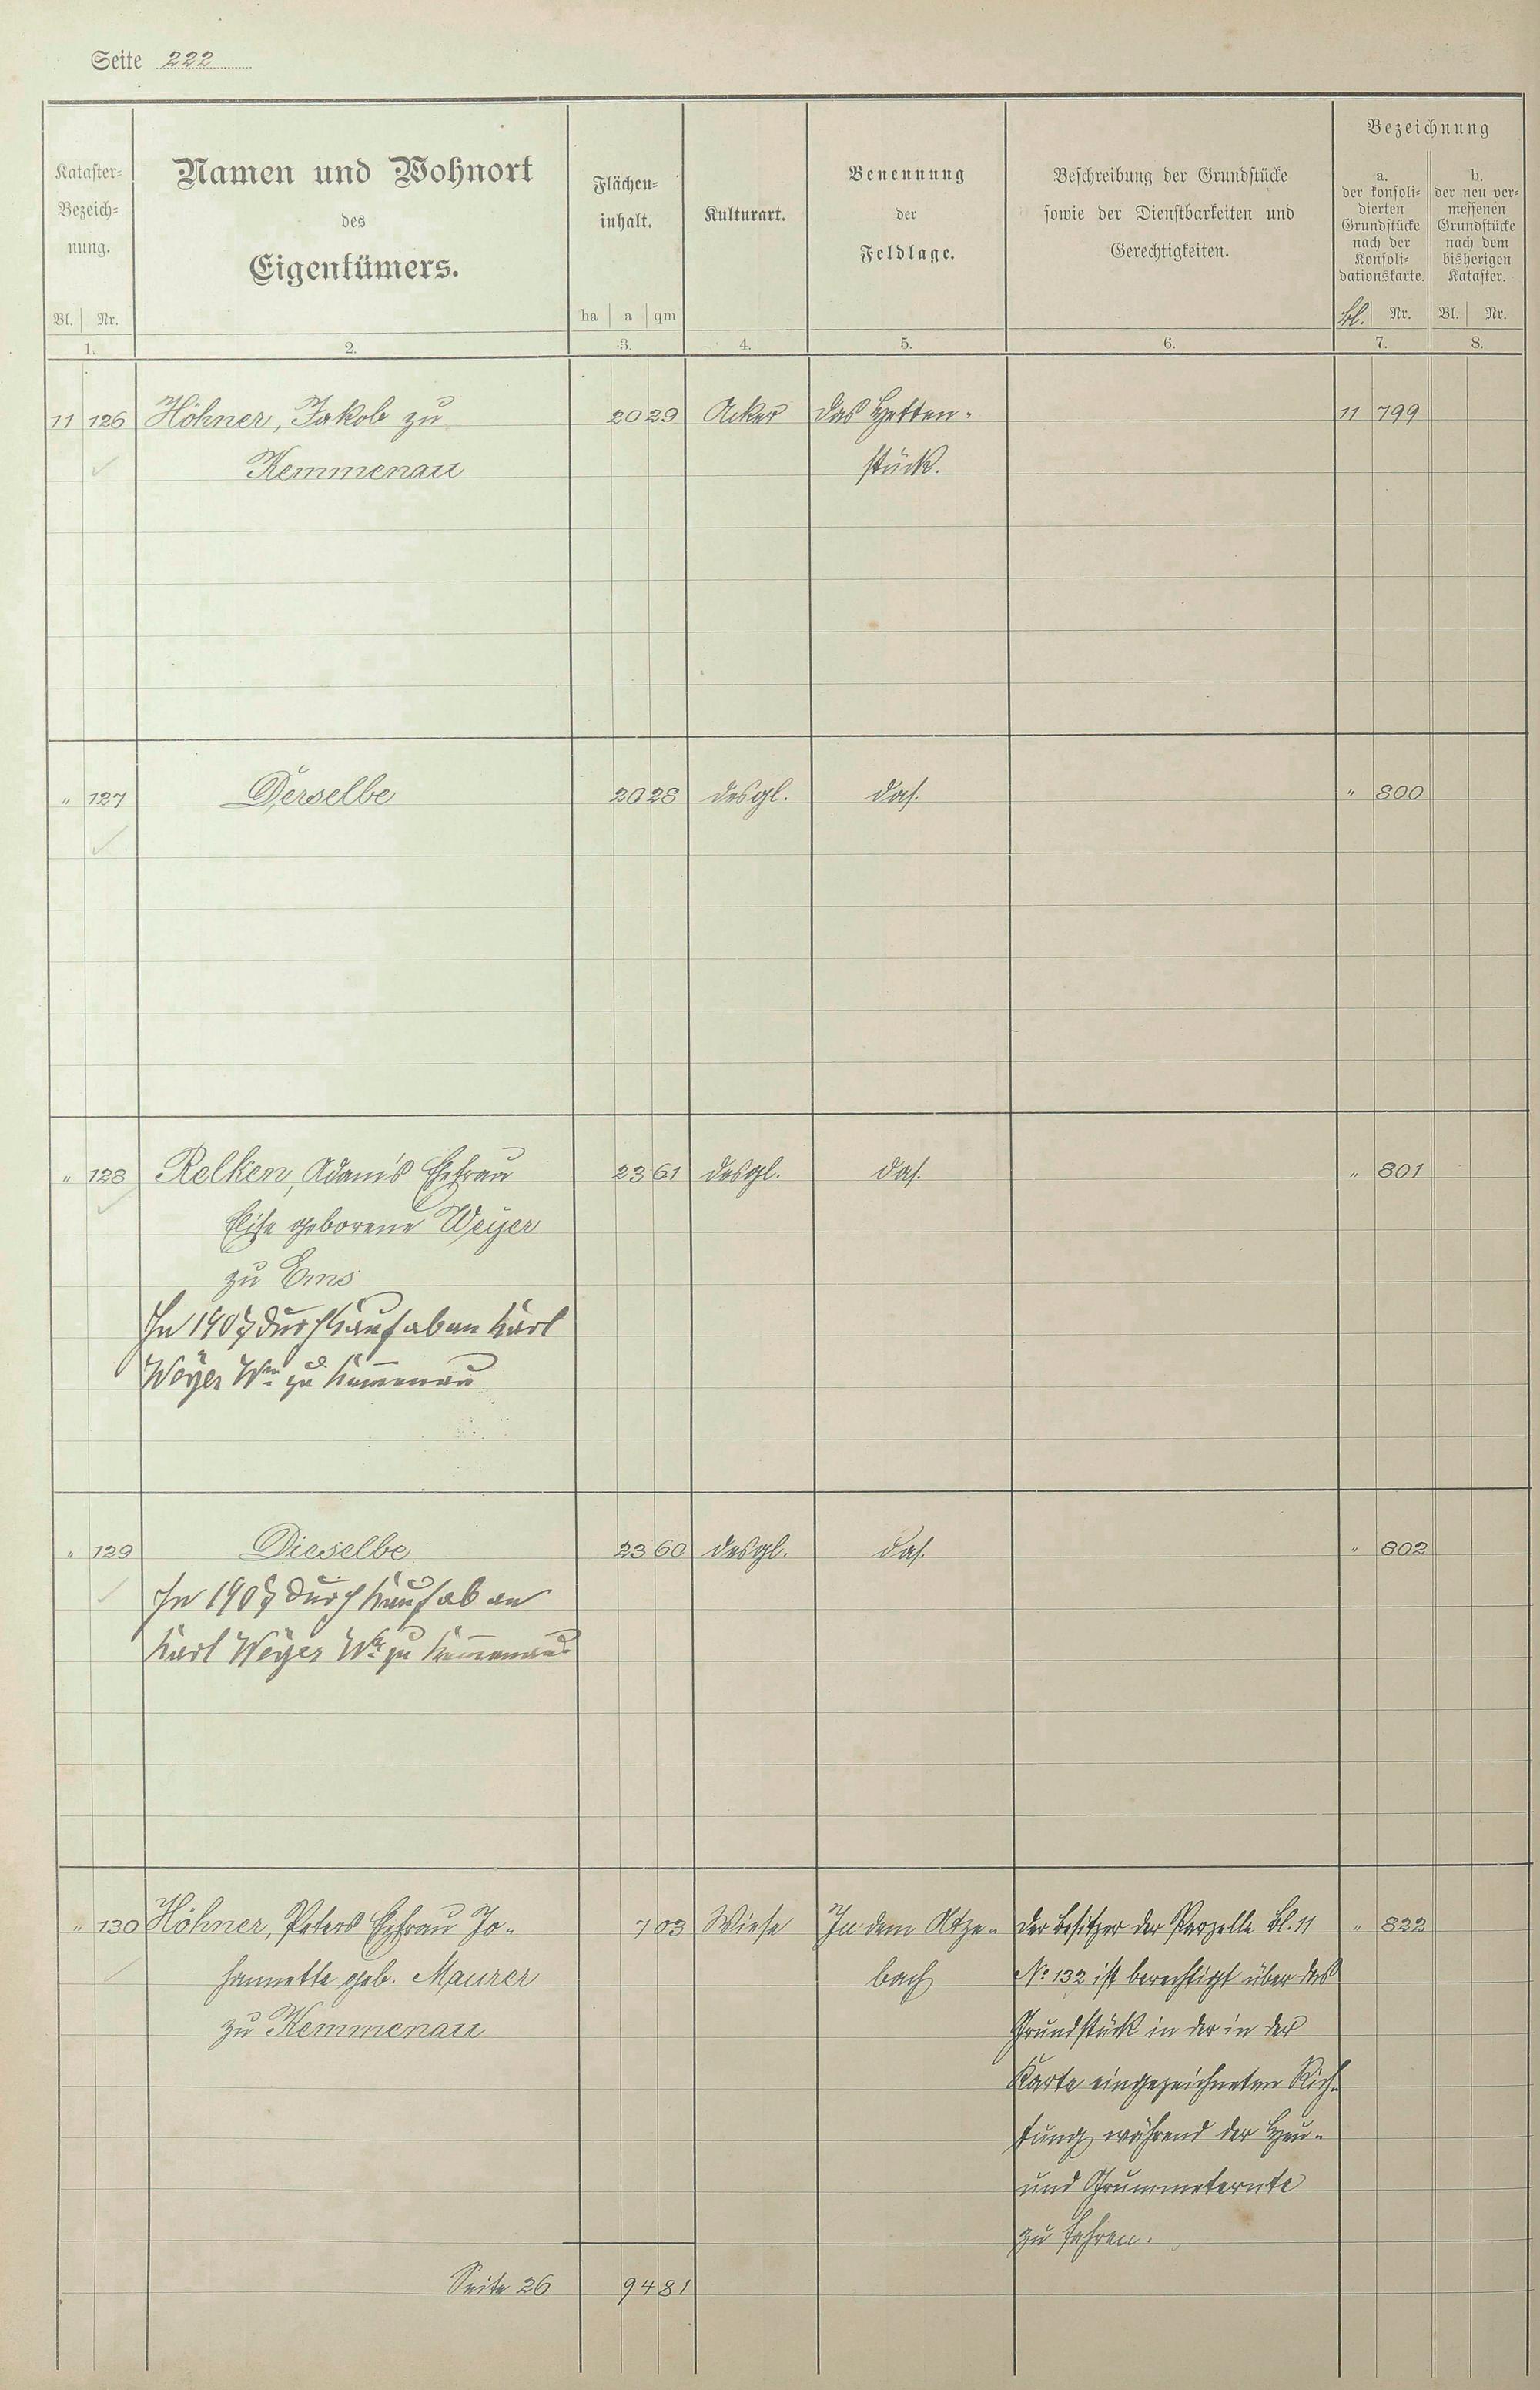 Seite 222
Kataster-
Bezeich-
nung.
Bl. Nr.
1.
Namen und Wohnort
des
Eigentümers.
2.
Flächen-
inhalt.
ha a qm
3.
Kulturart.
4.
Benennung
der
Feldlage.
5.
Beschreibung der Grundstücke
sowie der Dienstbarkeiten und
Gerechtigkeiten.
6.
Bezeichnung
a.
der konsoli-
dierten
Grundstücke
nach der
Konsoli-
dationskarte.
Bl. Nr.
7.
b.
der neu ver-
messenen
Grundstücke
nach dem
bisherigen
Kataster.
Bl. Nr.
8.
11 126 Höhner, Jakob zu 20 29 Acker das Hetten- 11 799
Kemmenau stück.
" 127 Derselbe 20 28 desgl. das. " 800
" 128 Relken, Adam's Ehefrau 23 61 desgl. das. " 801
Elise geborene Weyer
zu Ems
In 1907 durch Kauf ab an Karl
Weyer Wm zu Kemmenau
" 129 Dieselbe 23 60 desgl. das. " 802
In 1907 durch Kauf ab an
Karl Weyer zu Kemmenau
" 130 Höhner, Peters Ehefrau Jo- 7 03 Wiese In dem Atze- Der Besitzer der Parzelle Bl. 11 " 822
hannette geb. Maurer bach No 132 ist berechtigt über das
zu Kemmenau Grundstück in der in der
Karte eingezeichneten Rich-
tung während der Heu-
und Grummeternte
zu fahren.
Seite 26 94 81